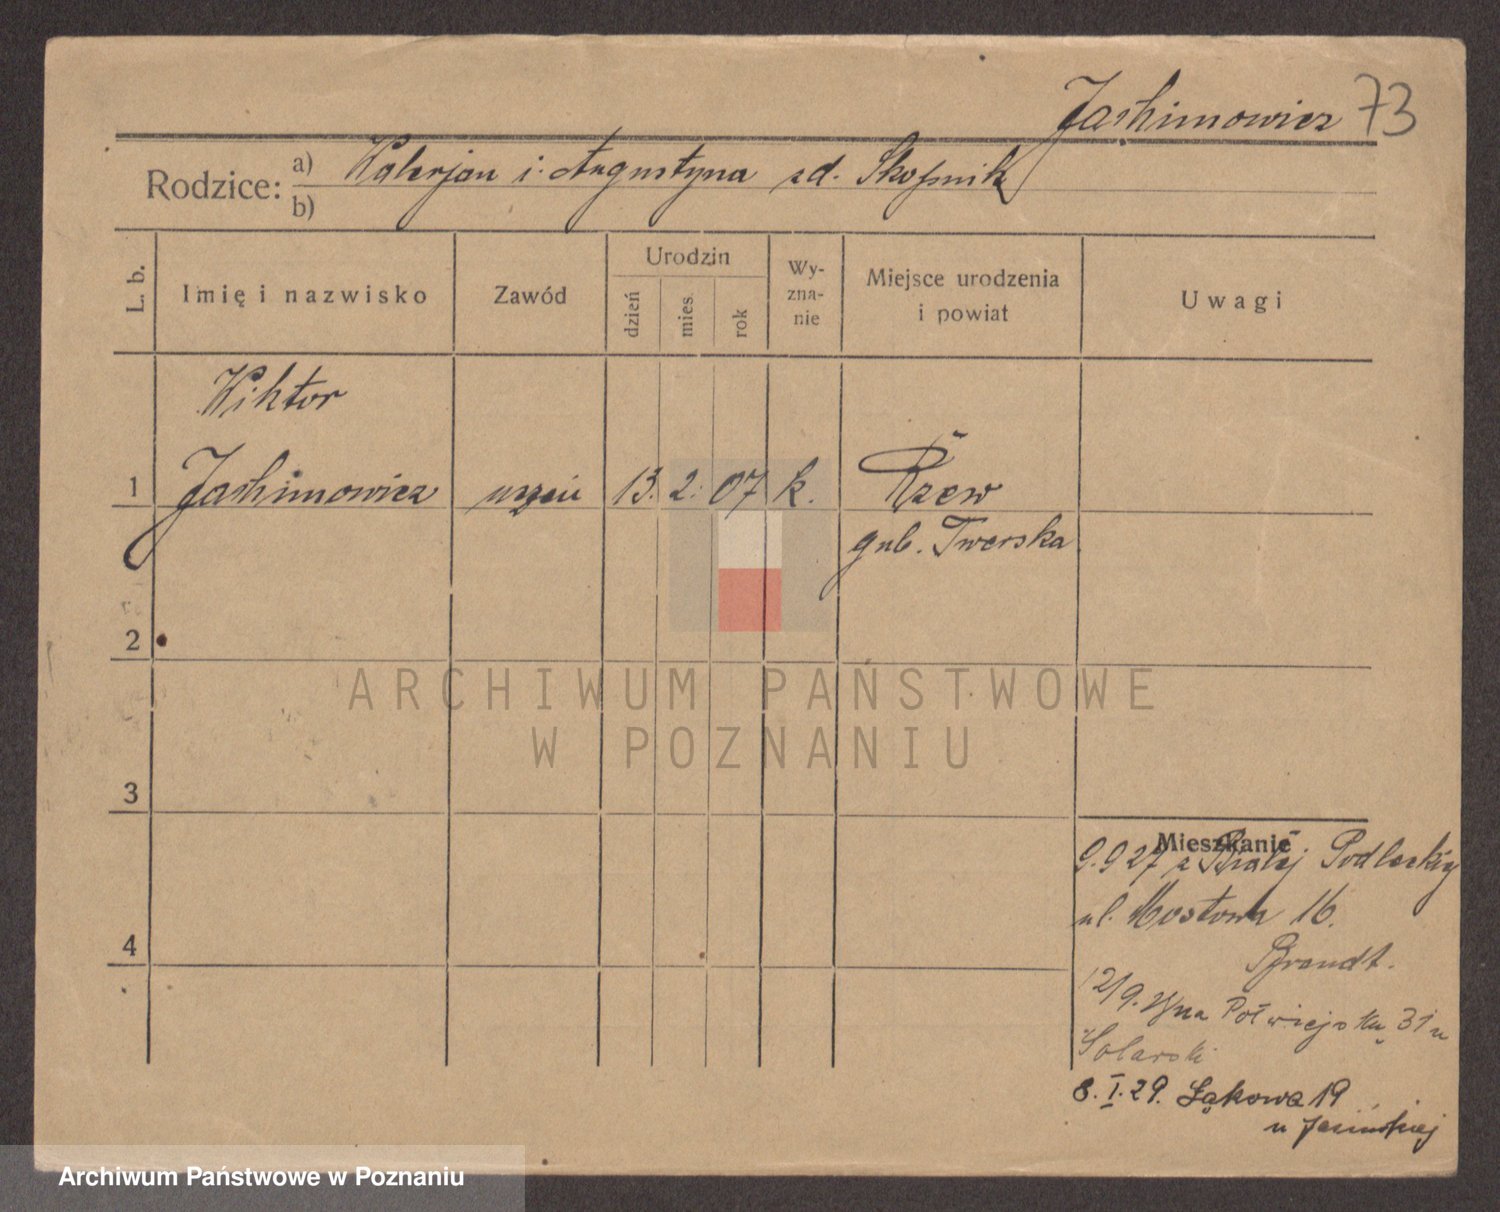 Jachimowicz 73
Rodzice: a) Walerjan i Augustyna zd.
b)
L. b.
Imię i nazwisko
Zawód
Urodzin
dzień
mies.
rok
Wy-
zna-
nie
Miejsce urodzenia
i powiat
Uwagi
Wiktor
1 Jachimowicz uczeń 13. 2. 07 k. Rżew
gub. Twerska
2
3
4
Mieszkanie
9.9 27 z Białej Podlaskiej
ul. Mostowa 16.
Brandt.
12/9. Półwiejska 31 u
Solarski
8. I. 29. Łąkowa 19
u Jasińskiej
ARCHIWUM PAŃSTWOWE
W POZNANIU
Archiwum Państwowe w Poznaniu